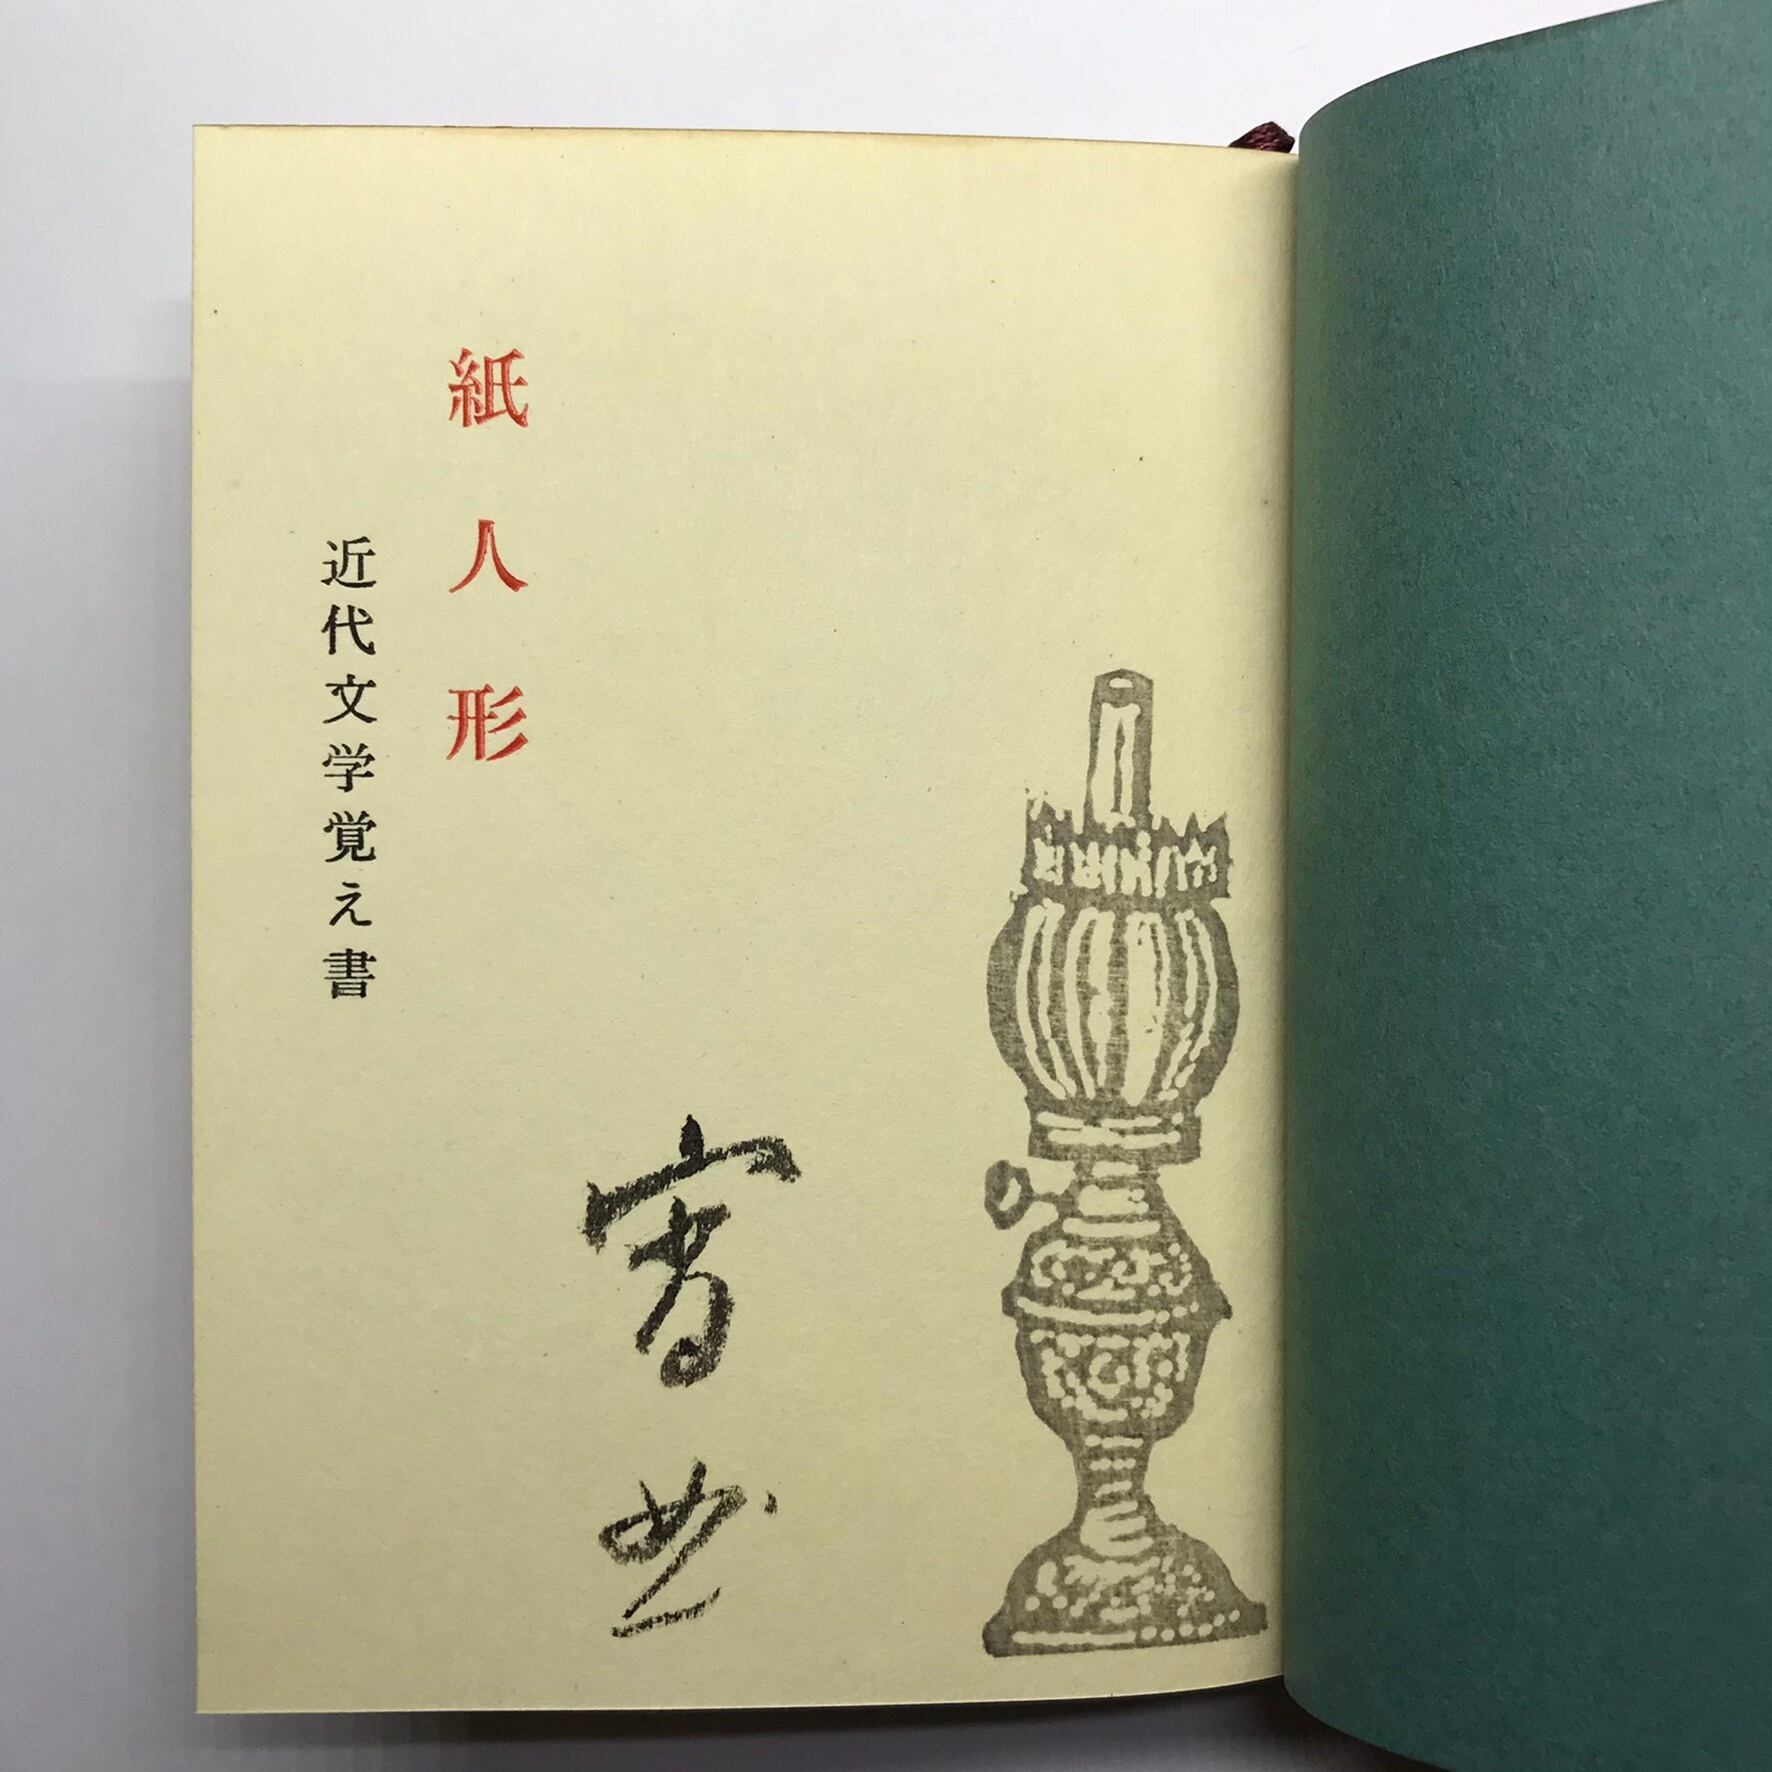 紙人形
近代文学覚え書